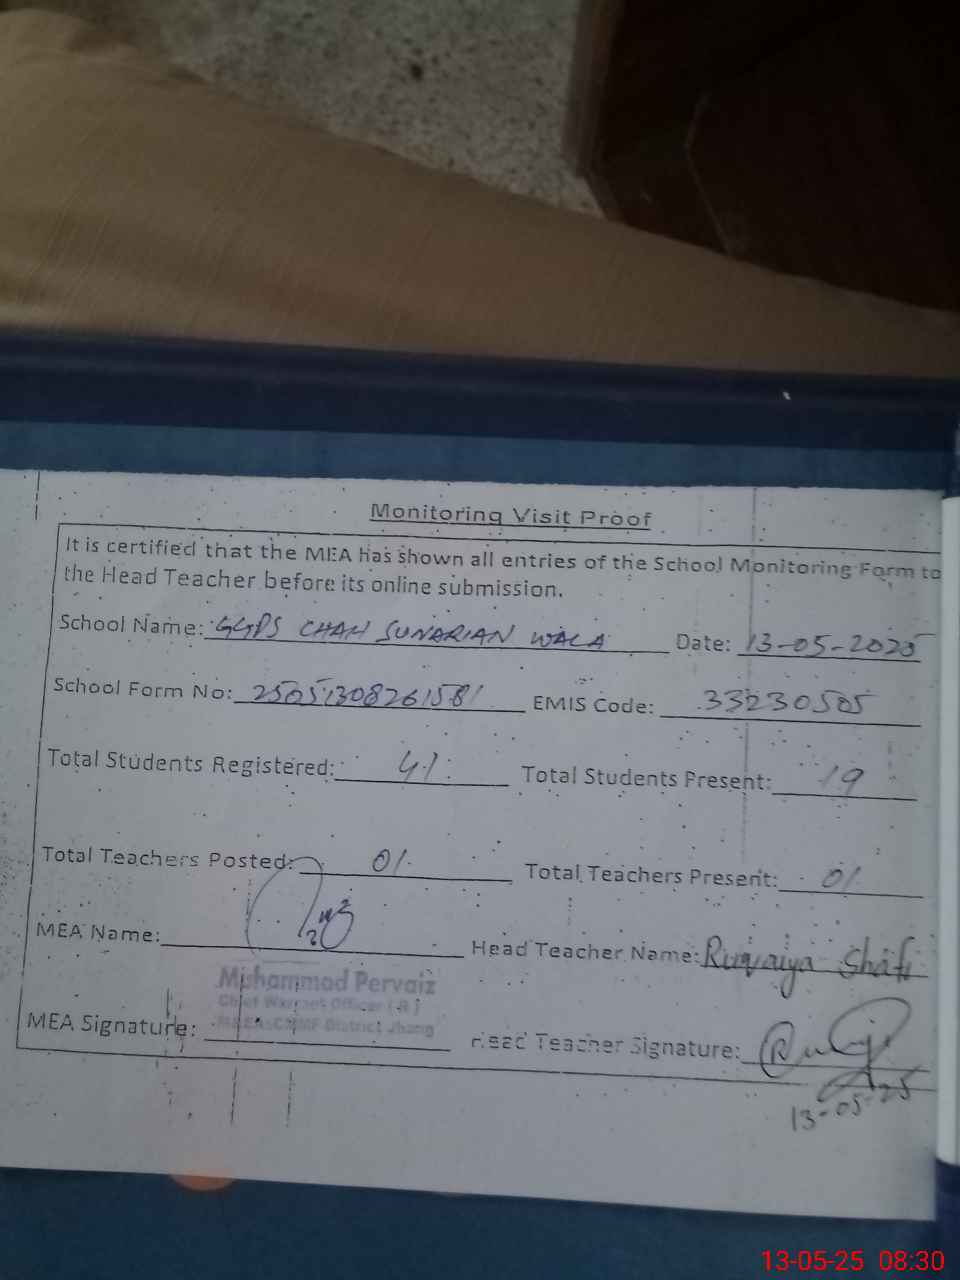 Monitoring Visit Proof
It is certified that the MEA has shown all entries of the School Monitoring Form to
the Head Teacher before its online submission.
School Name: GGPS CHAH SUNARIAN WALA Date: 13-05-2025
School Form No: 25051308261581 EMIS Code: 33230505
Total Students Registered: 41 Total Students Present: 19
Total Teachers Posted: 01 Total Teachers Present: 01
MEA Name: Head Teacher Name: Ruqaiya Shafi
Muhammad Pervaiz
Chief Warrant Officer (R)
MEA: CMMF District Jhang
MEA Signature: Head Teacher Signature:
13-05-25
13-05-25 08:30